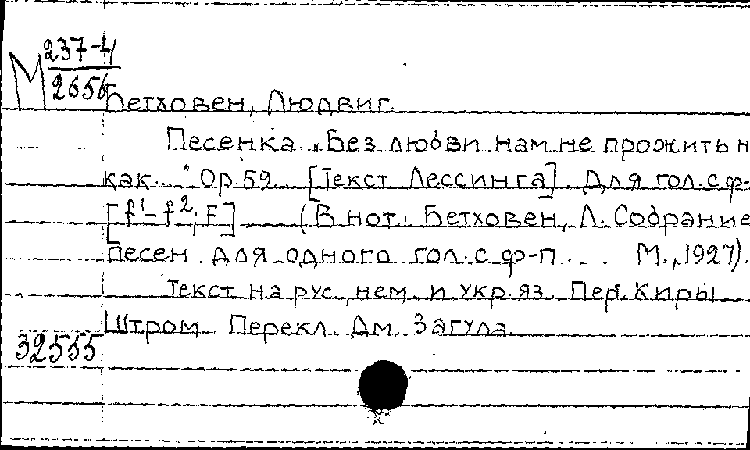 М 237-4/2656
Бетховен, Людвиг.
Песенка „Без любви нам не прожить н
как..." Op. 59. [Текст Лессинга]. Для гол. с ф-
[f¹-f², F] (В нот.: Бетховен, Л. Собрание
песен для одного гол. с ф-п... М., 1927).
Текст на рус., нем. и укр. яз. Пер. Киры
Штром. Перекл. Дм. Загула.
32555